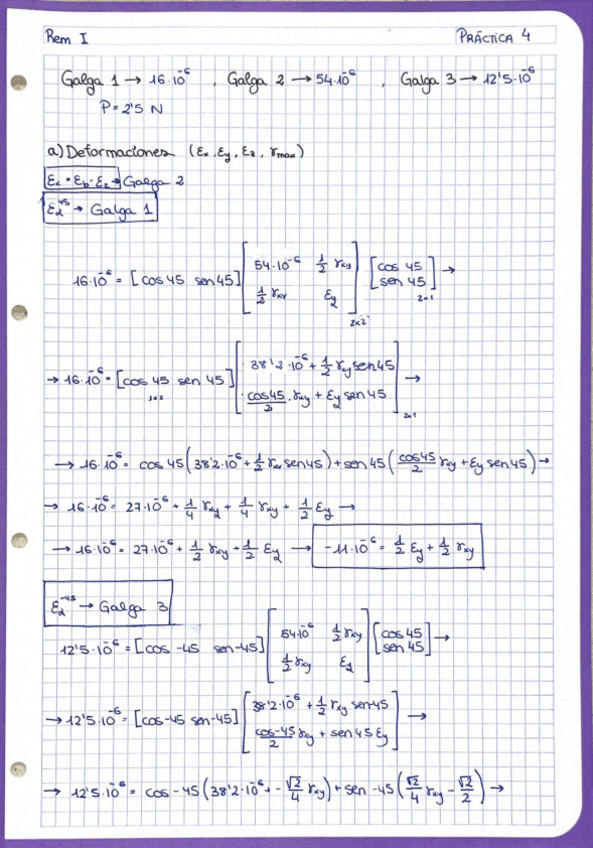 Rem I PRÁCTICA 4
Galga 1 → 16·10⁻⁶ , Galga 2 → 54·10⁻⁶ , Galga 3 → 12'5·10⁻⁶
P = 2'5 N
a) Deformaciones (εx, εy, εz, γmax)
→ Galga 2
→ Galga 1
16·10⁻⁶ = [cos 45 sen 45] [54·10⁻⁶ ½ γxy; ½ γxy εy]₂ₓ₂ [cos 45; sen 45]₂ₓ₁ →
→ 16·10⁻⁶ = [cos 45 sen 45]₁ₓ₂ [38'2·10⁻⁶ + ½ γxy sen 45; cos 45/2 · γxy + εy sen 45]₂ₓ₁ →
→ 16·10⁻⁶ = cos 45 (38'2·10⁻⁶ + ½ γxy sen 45) + sen 45 (cos 45/2 γxy + εy sen 45) →
→ 16·10⁻⁶ = 27·10⁻⁶ + ¼ γxy + ¼ γxy + ½ εy →
→ 16·10⁻⁶ = 27·10⁻⁶ + ½ γxy + ½ εy → -11·10⁻⁶ = ½ εy + ½ γxy
→ Galga 3
12'5·10⁻⁶ = [cos -45 sen -45] [54·10⁻⁶ ½ γxy; ½ γxy εy] [cos 45; sen 45] →
→ 12'5·10⁻⁶ = [cos -45 sen -45] [38'2·10⁻⁶ + ½ γxy sen -45; cos -45/2 γxy + sen 45 εy] →
→ 12'5·10⁻⁶ = cos -45 (38'2·10⁻⁶ + - √2/4 γxy) + sen -45 (√2/4 γxy - √2/2) →